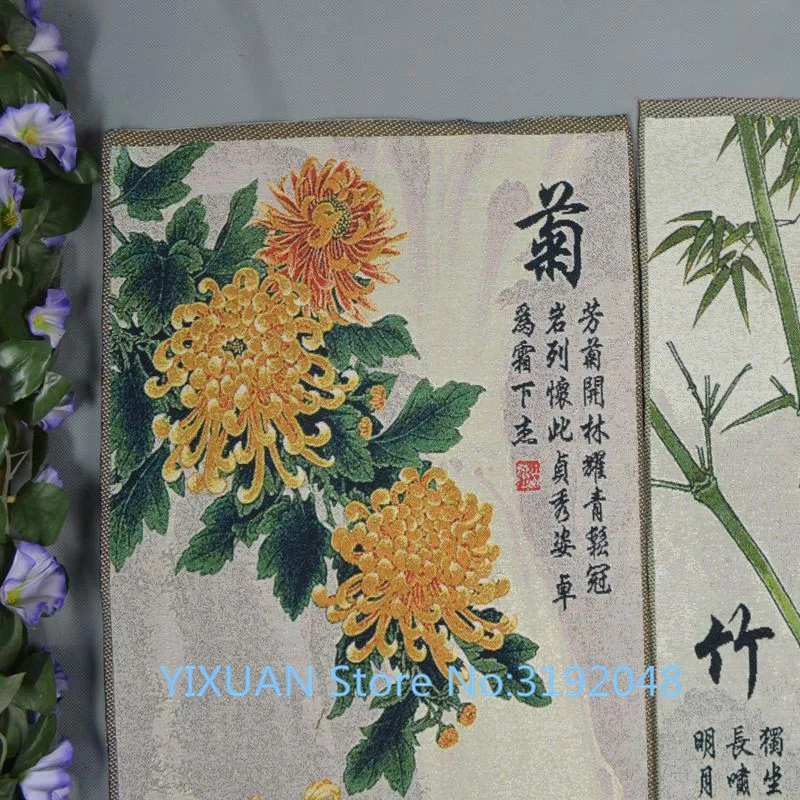 菊
芳菊開林耀青鬆冠
岩列懷此貞秀姿卓
爲霜下杰
竹
獨坐
長嘯
明月
YIXUAN Store No:3192048